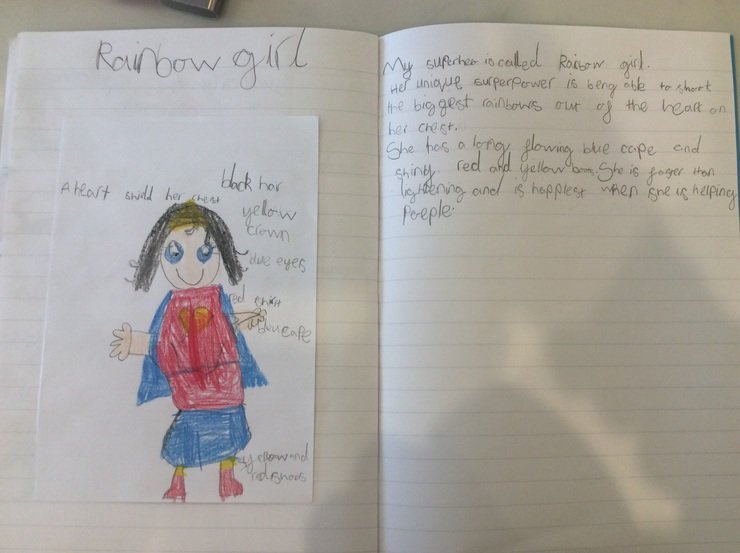 Rainbow girl
A heart shild her chest
black hair
yellow
crown
blue eyes
red shirt
blue cape
yellow and
red shoos
My superheo is called Raibow girl.
Her unique surperpower is beng able to shoot
the biggest rainbows out of the heart on
her chest.
She has a long flowing blue cape and
shiny red and yellow boots. She is faster than
lightening and is happiest when she is helping
Poeple.